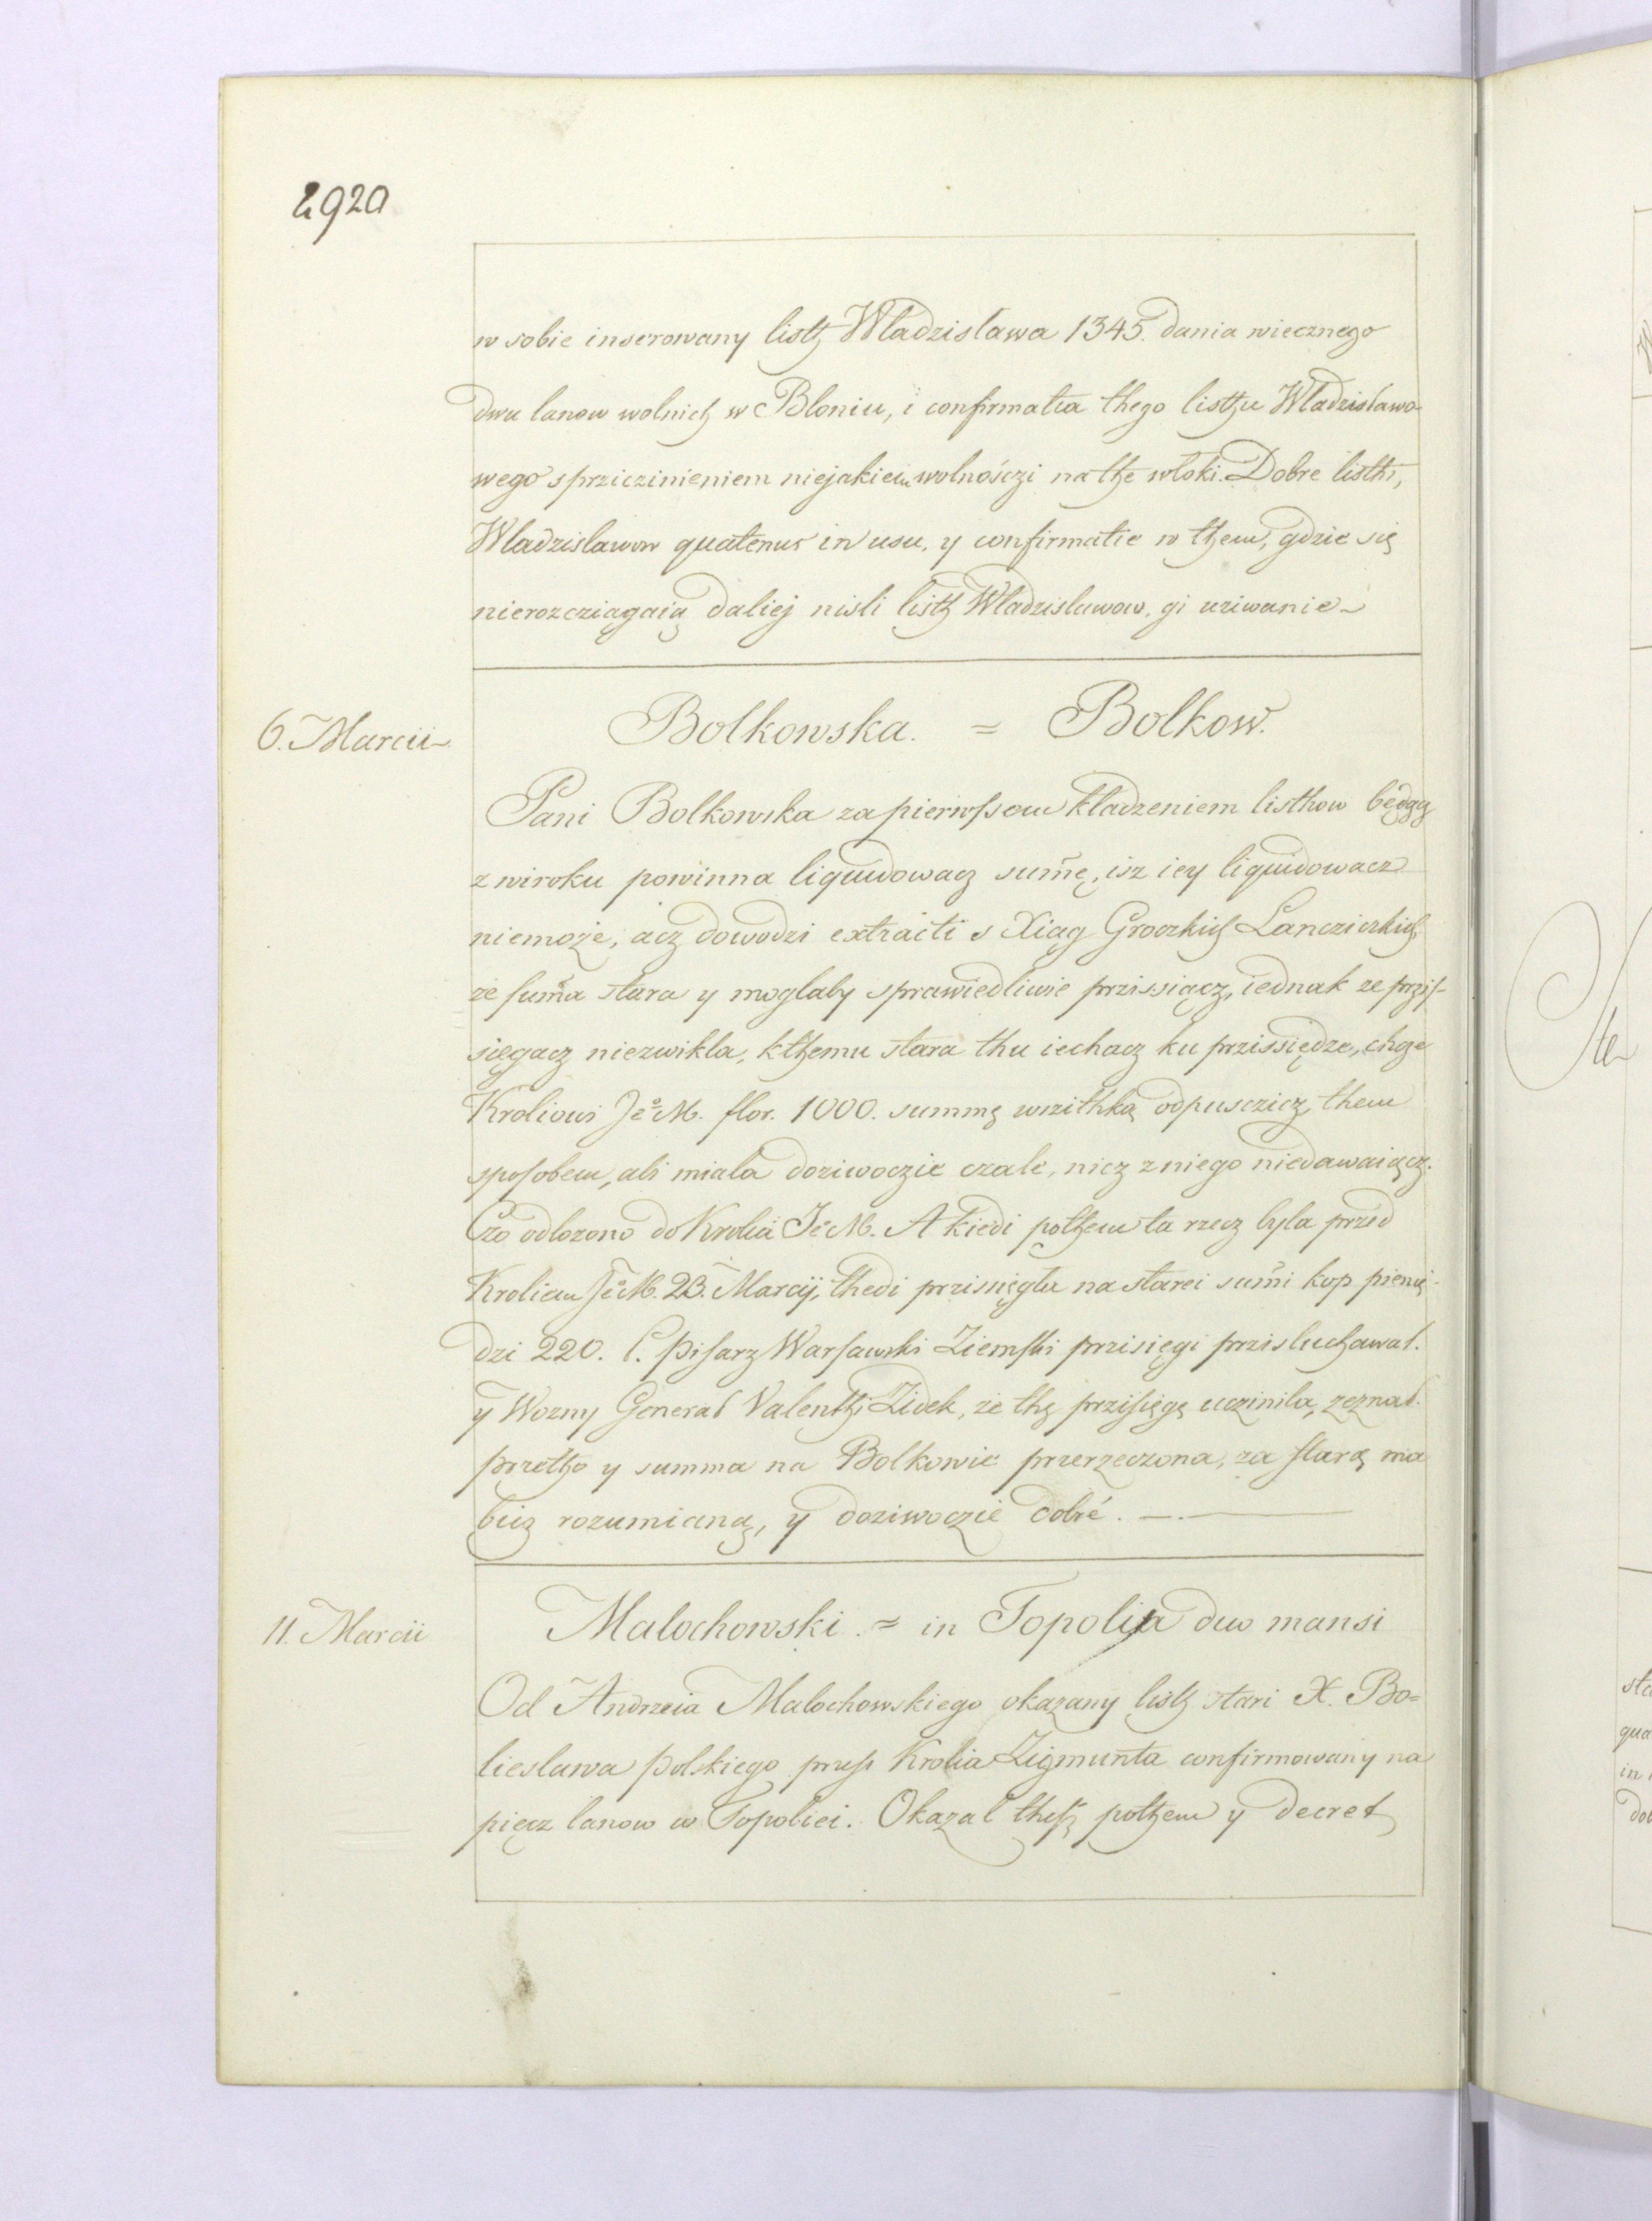 2920
w sobie inserowany listh Wladzislawa 1345. dania wiecznego
dwu lanow wolnich w Bloniu, i confirmatia thego listhu Wladzislawo-
wego sprziczinieniem niejakiem wolnośczi na the wloki. Dobre listhi,
Wladzislawow quatenus in usu, y confirmatie w them, gdzie się
nierozcziągaią daliej nisli listh Wladzislawow, gi uziwanie
6. Marcii
Bolkowska. = Bolkow.
Pani Bolkowska za pierwssem kladzeniem listhow będącz
z wiroku powinna liquidowacz sum̃ę, isz iey liquidowacz
niemoże, acz dowodzi extracti s Xiąg Groczkich Lancziczkich,
ze sum̃a stara y moglaby sprawiedliwie przissiącz, iednak ze przis-
sięgacz niezwikla, kthemu stara thu iechacz ku przissiędze, chcze
Kroliowi Jeo M. flor. 1000. summę wszithkę odpusczicz, them
sposobem, abi miala doziwoczie czale, nicz z niego niedawaiącz.
Czo odlozono do Krolia Jeo M. A kiedi pothem ta rzecz byla przed
Kroliem Jeo M. 23. Marcij, thedi przisięgla na starei sum̃i kop pienię-
dzi 220. P. Pisarz Warsawski Ziemski przisięgi przisluchawal.
y Wozny General Valenthi Zidek, ze thę przisięgę uczinila, zeznal.
przetho y summa na Bolkowie przerzeczona, za starą ma
bicz rozumianą, y doziwoczie dobré.
11. Marcii
Malochowski. = in Topolia duo mansi
Od Andrzeia Malochowskiego okazany listh stari X. Bo=
lieslawa polskiego przes Krolia Zigmunta confirmowany na
pięcz lanow w Topoliei. Okazal thesz pothem y decret